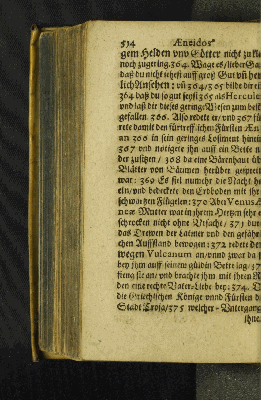 534 Æneidos
gem Helden vnd Götter nicht zu kle
noch zugering. 364. Wage es / lieber Ga
daß du nicht sehest auff groß Gut vñ her
lich Ansehen; vñ 364/365 bilde dir ei
364 daß du so gut seyst 365 als Hercule
und laß dir dieses geringe Wesen zum best
gefallen. 366. Also redete er / und 367 für
rete damit den fürtrefflichen Fürsten Æn
an 366 in sein geringes Losiment hinein
367 und nötigete ihn auff ein Bette n
der zusitzen / 368 da eine Bärenhaut üb
Blätter von Bäumen herüber gespreit
war: 369 Es fiel numehr die Nacht he
ein / und bedeckete den Erdboden mit ihr
schwartzen Flügeln: 370 Aber Venus Æ
neæ Mutter war in ihrem Hertzen sehr e
schrocken nicht ohne Ursache / 371 durc
das Drewen der Latiner und den gefähr
chen Auffstand bewogen: 372 redete der
wegen Vulcanum an / vnnd zwar da f
bey ihm auff seinem güldin Bette lag / 37
fieng sie an / und brachte ihm mit ihren R
den eine rechte Vater-Liebe bey: 374. D
die Griechischen Könige vnnd Fürsten d
Stadt Troja / 375 welcher Untergang
ihne